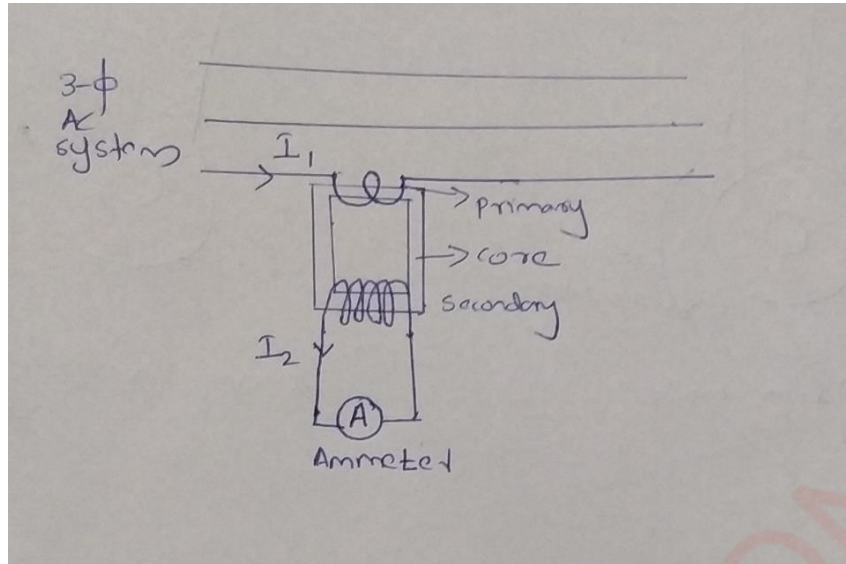 3-ϕ
AC
system
I₁
primary
core
secondary
I₂
A
Ammeter